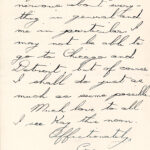 nervous about every-
thing in general and
me in particular I
may not be able to
go to Chicago and
Detroit but of course
I shall do just as
much as seems possible
Much love to all
I see Kay this noon.
Affectionately,